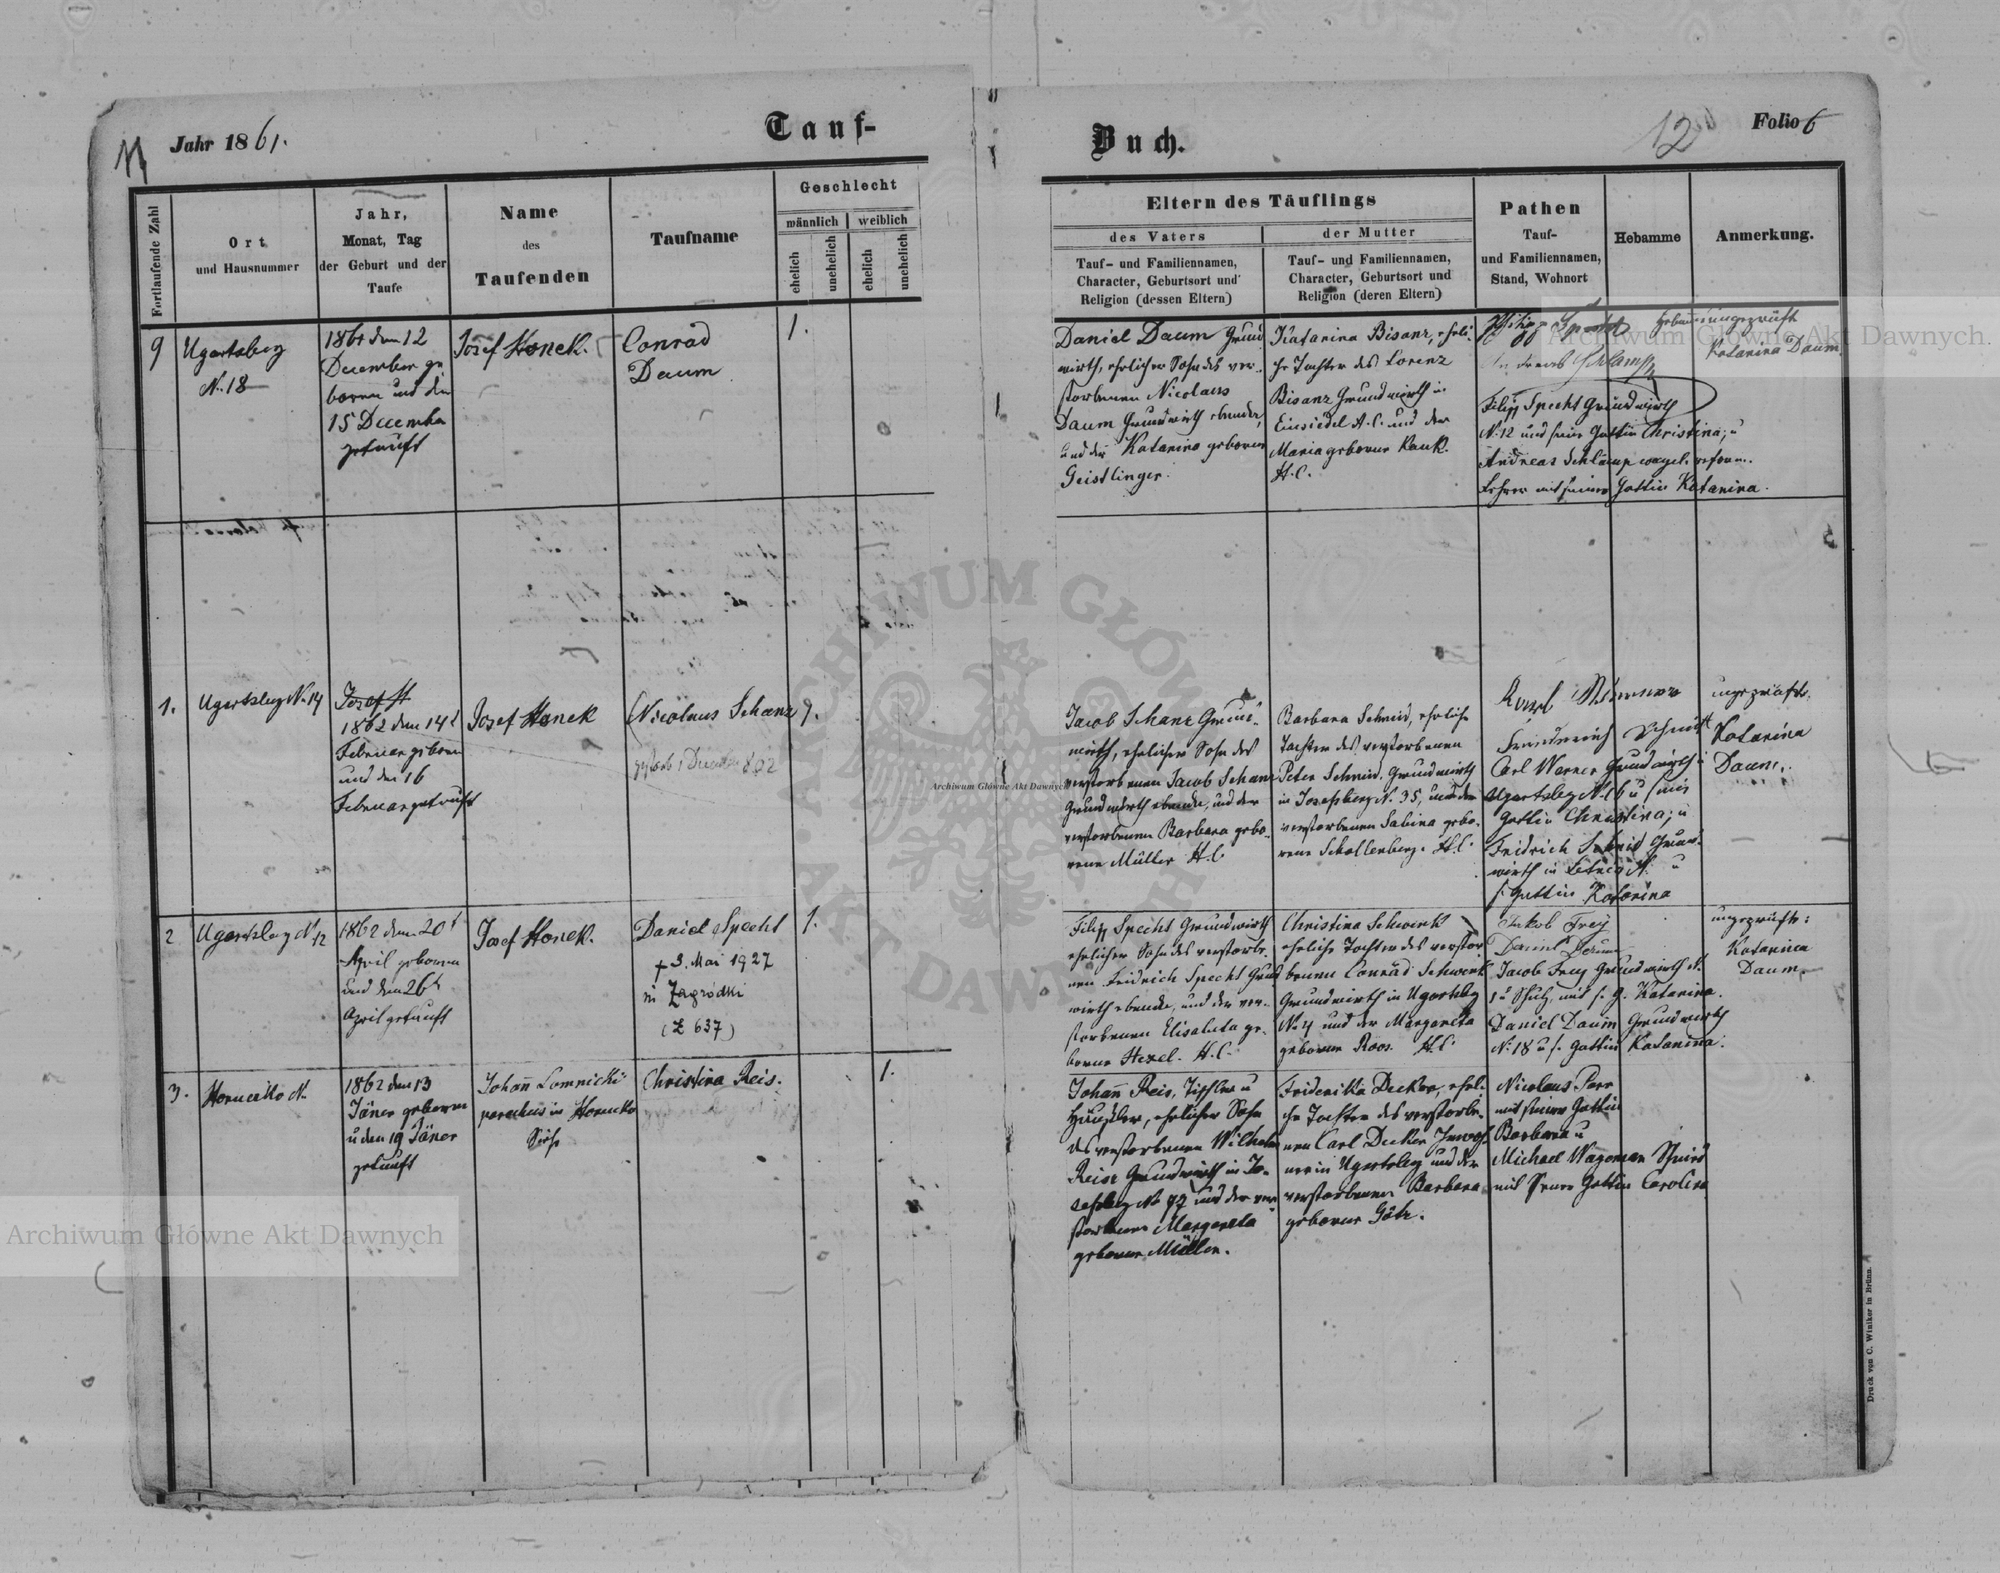 11
Jahr 1861.
Tauf-
Buch.
12
Folio 6
Fortlaufende Zahl
Ort
und Hausnummer
Jahr,
Monat, Tag
der Geburt und der
Taufe
Name
des
Taufenden
Taufname
Geschlecht
männlich
weiblich
ehelich
unehelich
ehelich
unehelich
Eltern des Täuflings
des Vaters
Tauf- und Familiennamen,
Character, Geburtsort und
Religion (dessen Eltern)
der Mutter
Tauf- und Familiennamen,
Character, Geburtsort und
Religion (deren Eltern)
Pathen
Tauf-
und Familiennamen,
Stand, Wohnort
Hebamme
Anmerkung.
9
Ugartsberg
N. 18
1861 den 12
December ge
boren und den
15 December
getauft
Josef Honek.
Conrad
Daum
1.
Daniel Daum Grund
wirth, ehelicher Sohn des ver-
storbenen Nicolaus
Daum Grundwirth
und der Katarina geboren
Geistlinger.
Katarina Bisanz, eheli-
che Tochter des Lorenz
Bisanz Grundwirth in
Einsiedel A.C. und der
Maria geborne Kauk.
H.C.
Philipp Specht
Andreas Schlamp
Filipp Specht Grundwirth
N. 12 und seine Gattin Christina; u
Andreas Schlamp evagel. reform.
Lehrer mit seiner Gattin Katarina.
ungeprüft
Katarina Daum
1.
Ugartsberg N. 14
1862 den 14t
Februar geboren
und den 16
Februar getauft
Josef Honek
Nicolaus Schanz
1.
Jacob Schanz Grund-
wirth, ehelicher Sohn des
verstorbenen Jacob Schanz
Grundwirth und der
verstorbenen Barbara gebo-
rene Müller H.C.
Barbara Schmid, eheliche
Tochter des verstorbenen
Peter Schmid, Grundwirth
in Josefsberg N. 35, und der
verstorbenen Sabina gebo-
rene Schollenberg. H.C.
Friedrich Schmidt
Carl Werner Grundwirth
Ugartsberg N. 16 u seine
Gattin Christina; u
Fridrich Schmid Grund-
wirth in u
s. Gattin Katarina
ungeprüft.
Katarina
Daum.
2
Ugartsberg N. 12
1862 den 20t
April geboren
und den 26t
April getauft
Josef Honek.
Daniel Specht
+ 3. Mai 1927
in Zagródki
(Z 637)
1.
Filipp Specht Grundwirth
ehelicher Sohn des verstorbe-
nen Fridrich Specht Grund
wirth und der ver-
storbenen Elisabeta ge-
borne Hexel. H.C.
Christina Schwenk
eheliche Tochter des verstor-
benen Conrad Schwenk
Grundwirth in Ugartsbg
N. 4 und der Margareta
geborne Roos. H.C.
Jakob Frey
Daniel Daum
Jacob Frey Grundwirth N.
mit s. G. Katarina.
Daniel Daum Grundwirth
N. 18 u s. Gattin Katarina.
ungeprüft:
Katarina
Daum.
3.
1862 den 13
Jäner geboren
u den 19 Jäner
getauft
Johann Lomnicki
parochus in
Christina Reis.
1.
Johann Reis, Tischler u
Häusler, ehelicher Sohn
des verstorbenen Wilhelm
Reise Grundwirth in Jo-
sefsberg N. 97 und der ver-
storbenen Margareta
geborne Müller.
Friderika Decker, eheli-
che Tochter des verstorbe-
nen Carl Decker
in Ugartsberg und der
verstorbenen Barbara
geborne Götz.
Nicolaus Parr
mit seiner Gattin
Barbara u
Michael Wageman Schmid
mit seiner Gattin Carolina
Druck von C. Winiker in Brünn.
Archiwum Główne Akt Dawnych
Archiwum Główne Akt Dawnych
Archiwum Główne Akt Dawnych
ARCHIWUM GŁÓWNE AKT DAWNYCH